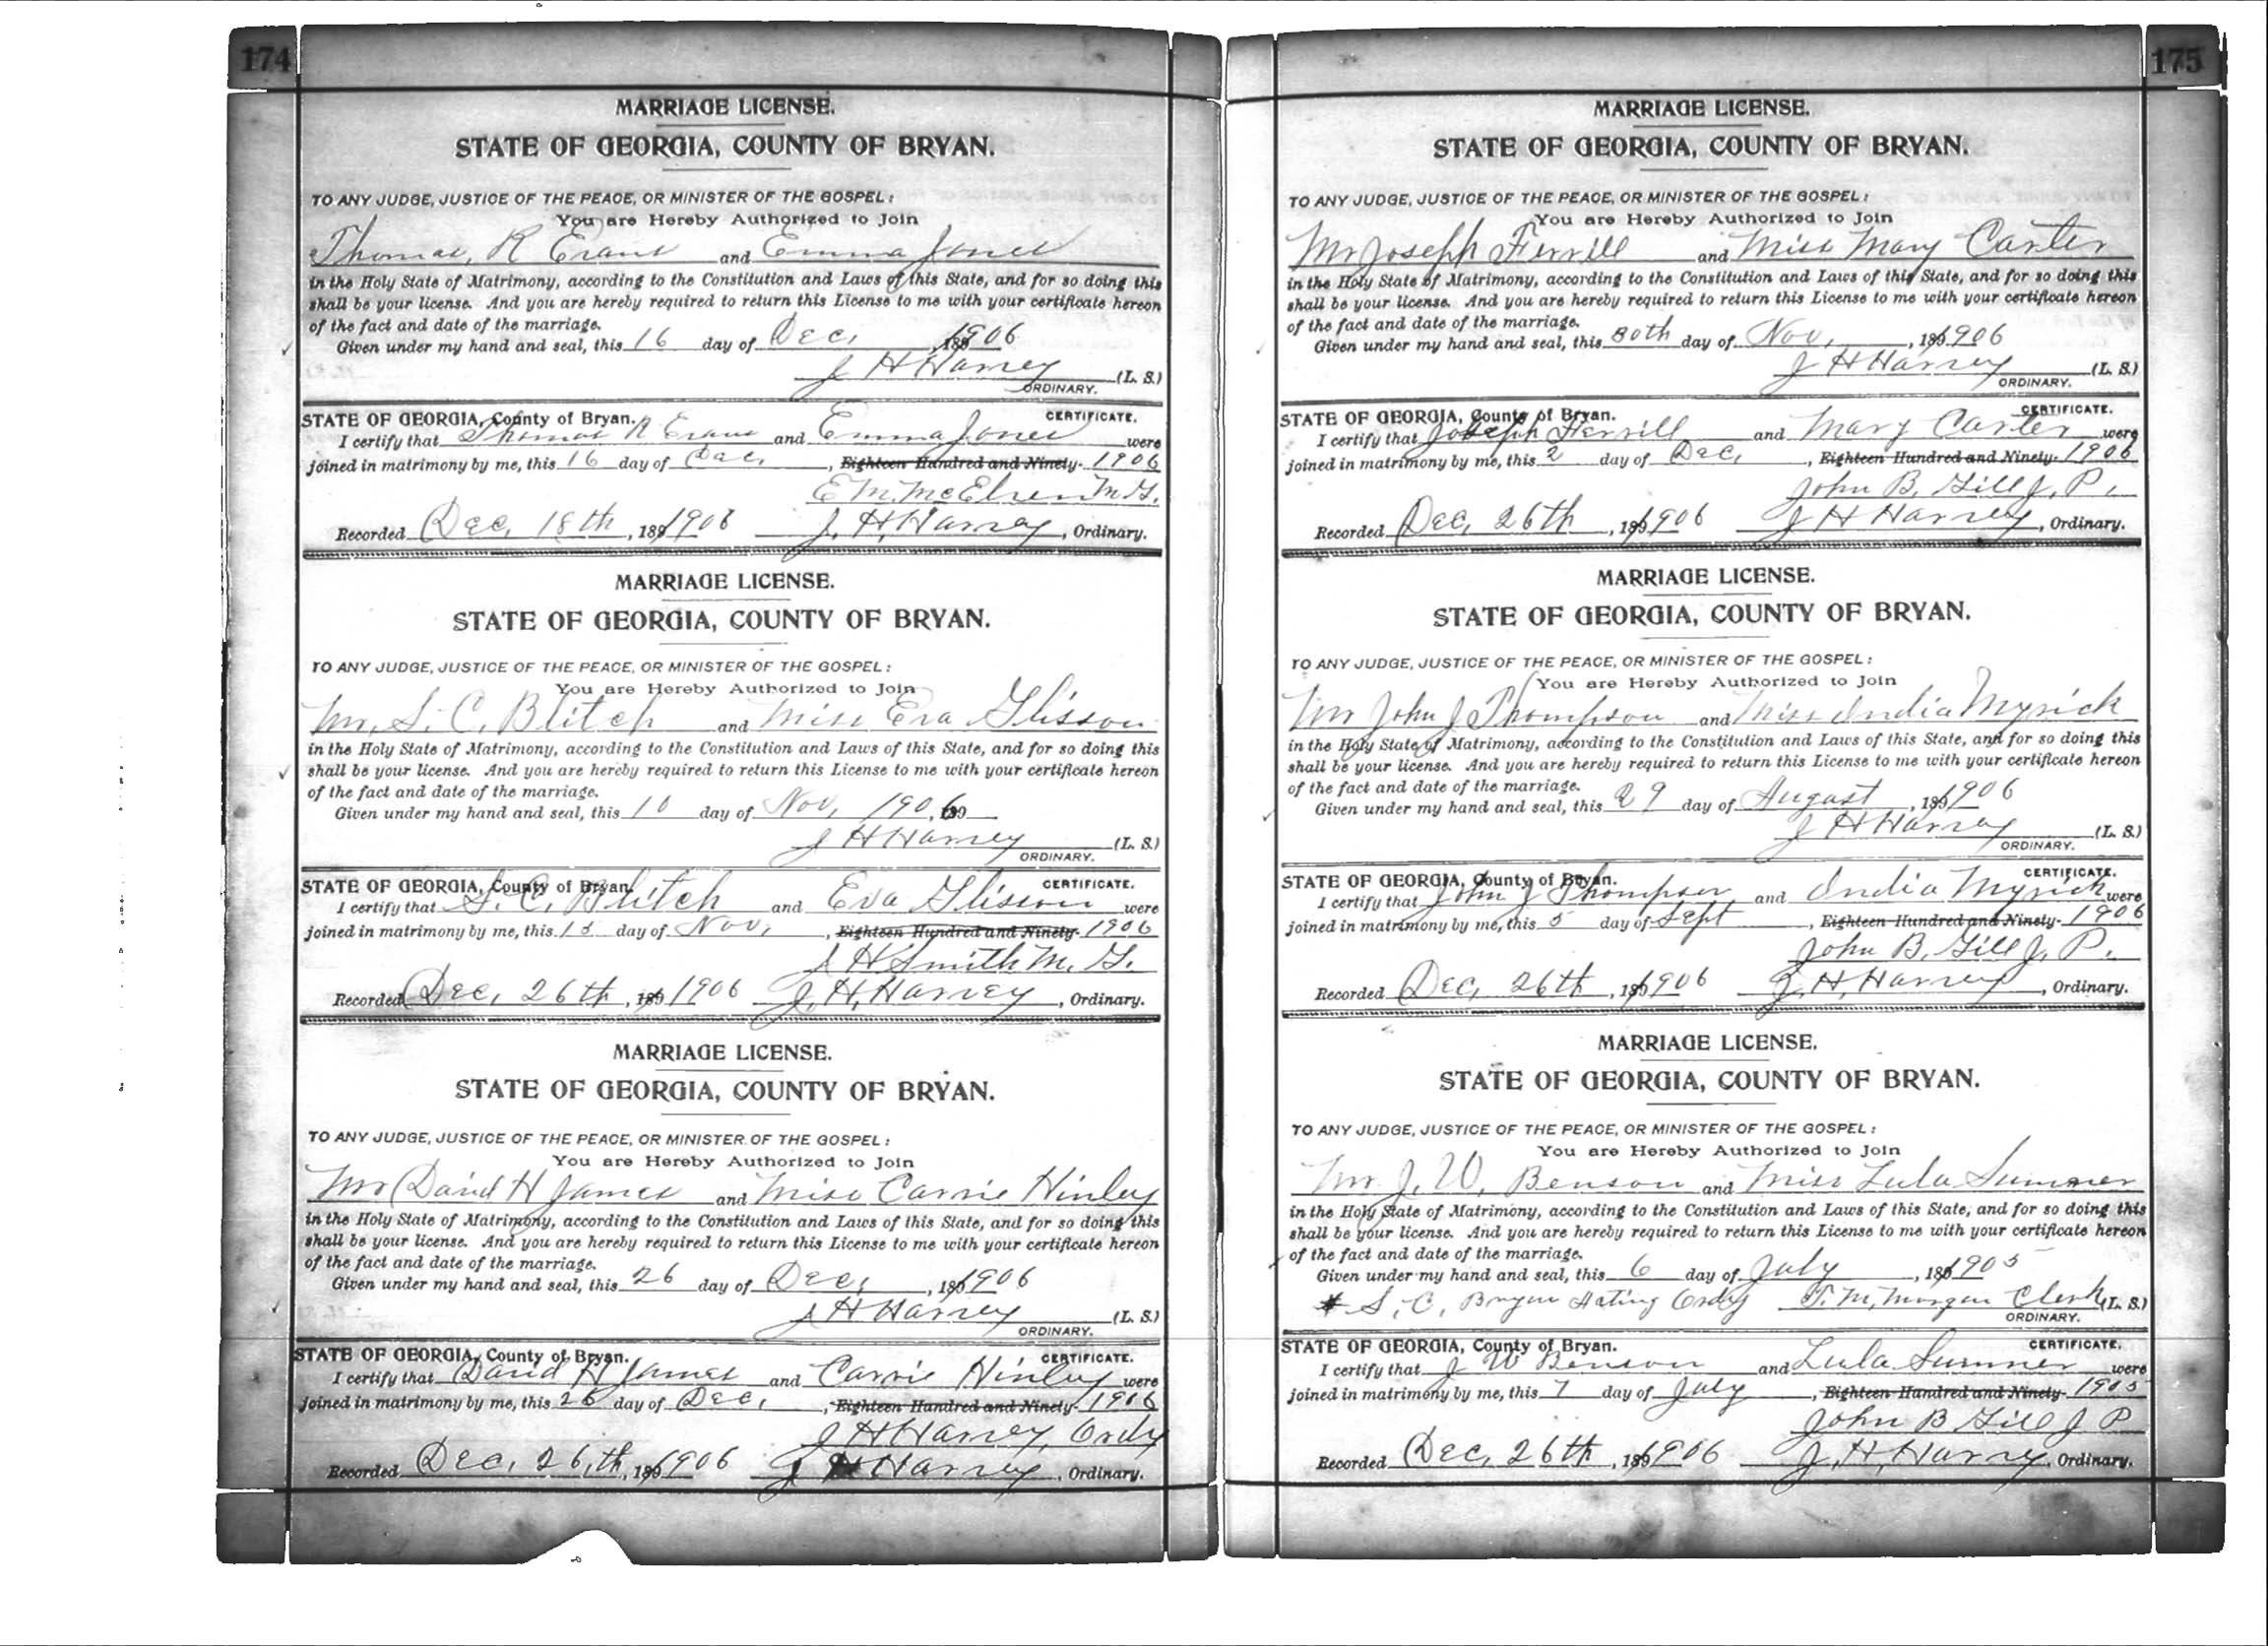 174
MARRIAGE LICENSE.
STATE OF GEORGIA, COUNTY OF BRYAN.
TO ANY JUDGE, JUSTICE OF THE PEACE, OR MINISTER OF THE GOSPEL:
You are Hereby Authorized to Join
Thomas, R Evans and Emma Jones
in the Holy State of Matrimony, according to the Constitution and Laws of this State, and for so doing this
shall be your license. And you are hereby required to return this License to me with your certificate hereon
of the fact and date of the marriage.
Given under my hand and seal, this 16 day of Dec, 1906
J H Harvey (L. S.)
ORDINARY.
STATE OF GEORGIA, County of Bryan. CERTIFICATE.
I certify that Thomas R Evans and Emma Jones were
joined in matrimony by me, this 16 day of Dec, Eighteen Hundred and Ninety- 1906
E M. McElveen M G.
Recorded Dec, 18th, 189 1906 J. H. Harvey, Ordinary.
MARRIAGE LICENSE.
STATE OF GEORGIA, COUNTY OF BRYAN.
TO ANY JUDGE, JUSTICE OF THE PEACE, OR MINISTER OF THE GOSPEL:
You are Hereby Authorized to Join
Mr, S. C. Blitch and Miss Eva Glisson
in the Holy State of Matrimony, according to the Constitution and Laws of this State, and for so doing this
shall be your license. And you are hereby required to return this License to me with your certificate hereon
of the fact and date of the marriage.
Given under my hand and seal, this 10 day of Nov, 1906, 189
J H Harvey (L. S.)
ORDINARY.
STATE OF GEORGIA, County of Bryan. CERTIFICATE.
I certify that S. C. Blitch and Eva Glisson were
joined in matrimony by me, this day of Nov, Eighteen Hundred and Ninety- 1906
J H Smith M. G.
Recorded Dec, 26th, 189 1906 J. H. Harvey, Ordinary.
MARRIAGE LICENSE.
STATE OF GEORGIA, COUNTY OF BRYAN.
TO ANY JUDGE, JUSTICE OF THE PEACE, OR MINISTER OF THE GOSPEL:
You are Hereby Authorized to Join
Mr David H James and Miss Carrie Hinley
in the Holy State of Matrimony, according to the Constitution and Laws of this State, and for so doing this
shall be your license. And you are hereby required to return this License to me with your certificate hereon
of the fact and date of the marriage.
Given under my hand and seal, this 26 day of Dec, 189 1906
J H Harvey (L. S.)
ORDINARY.
STATE OF GEORGIA, County of Bryan. CERTIFICATE.
I certify that David H James and Carrie Hinley were
joined in matrimony by me, this 26 day of Dec, Eighteen Hundred and Ninety- 1906
J H Harvey, Ordy
Recorded Dec, 26th, 189 1906 J H Harvey, Ordinary.
175
MARRIAGE LICENSE.
STATE OF GEORGIA, COUNTY OF BRYAN.
TO ANY JUDGE, JUSTICE OF THE PEACE, OR MINISTER OF THE GOSPEL:
You are Hereby Authorized to Join
Mr Joseph Ferrill and Miss Mary Carter
in the Holy State of Matrimony, according to the Constitution and Laws of this State, and for so doing this
shall be your license. And you are hereby required to return this License to me with your certificate hereon
of the fact and date of the marriage.
Given under my hand and seal, this 30th day of Nov, 189 1906
J H Harvey (L. S.)
ORDINARY.
STATE OF GEORGIA, County of Bryan. CERTIFICATE.
I certify that Joseph Ferrill and Mary Carter were
joined in matrimony by me, this 2 day of Dec, Eighteen Hundred and Ninety- 1906
John B. Gill J. P.
Recorded Dec, 26th, 189 1906 J H Harvey, Ordinary.
MARRIAGE LICENSE.
STATE OF GEORGIA, COUNTY OF BRYAN.
TO ANY JUDGE, JUSTICE OF THE PEACE, OR MINISTER OF THE GOSPEL:
You are Hereby Authorized to Join
Mr John J Thompson and Miss India Myrick
in the Holy State of Matrimony, according to the Constitution and Laws of this State, and for so doing this
shall be your license. And you are hereby required to return this License to me with your certificate hereon
of the fact and date of the marriage.
Given under my hand and seal, this 29 day of August, 189 1906
J H Harvey (L. S.)
ORDINARY.
STATE OF GEORGIA, County of Bryan. CERTIFICATE.
I certify that John J Thompson and India Myrick were
joined in matrimony by me, this 5 day of Sept, Eighteen Hundred and Ninety- 1906
John B. Gill J. P.
Recorded Dec, 26th, 189 1906 J. H. Harvey, Ordinary.
MARRIAGE LICENSE.
STATE OF GEORGIA, COUNTY OF BRYAN.
TO ANY JUDGE, JUSTICE OF THE PEACE, OR MINISTER OF THE GOSPEL:
You are Hereby Authorized to Join
Mr. J. W. Benson and Miss Lula Sumner
in the Holy State of Matrimony, according to the Constitution and Laws of this State, and for so doing this
shall be your license. And you are hereby required to return this License to me with your certificate hereon
of the fact and date of the marriage.
Given under my hand and seal, this 6 day of July, 189 1905
S. C. Bryan Acting Ordy T. M. Morgan Clerk (L. S.)
ORDINARY.
STATE OF GEORGIA, County of Bryan. CERTIFICATE.
I certify that J W Benson and Lula Sumner were
joined in matrimony by me, this 7 day of July, Eighteen Hundred and Ninety- 1905
John B Gill J P
Recorded Dec, 26th, 189 1906 J. H. Harvey, Ordinary.